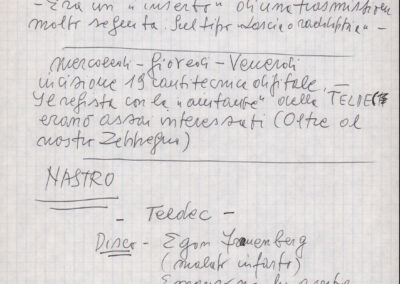 - Era un "inserto" di una trasmissione
molto seguita. Sul tipo "Lascia o raddoppia" -
mercoledì - Giovedì - Venerdì
incisione 19 con tecnica digitale.
Il regista con la "aiutante" della TELDEC
erano assai interessati (Oltre al
nostro
NASTRO
- Teldec -
Disco - Egon
(malato infarto)